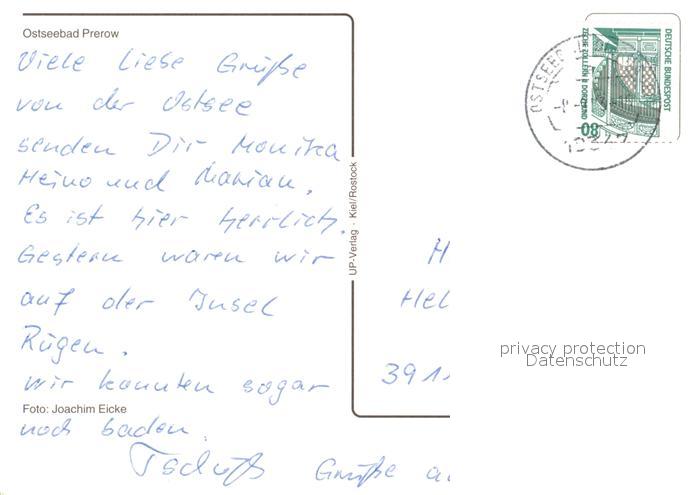 Ostseebad Prerow
Viele liebe Grüße
von der Ostsee
senden Dir Monika
Heino und Marian.
Es ist hier herrlich.
Gestern waren wir
auf der Insel
Rügen.
wir konnten sogar
Foto: Joachim Eicke
noch baden.
Tschüß Grüße a
UP-Verlag · Kiel/Rostock
H
Hel
391
privacy protection
Datenschutz
DEUTSCHE BUNDESPOST
ZECHE ZOLLERN II DORTMUND
80
OSTSEEB